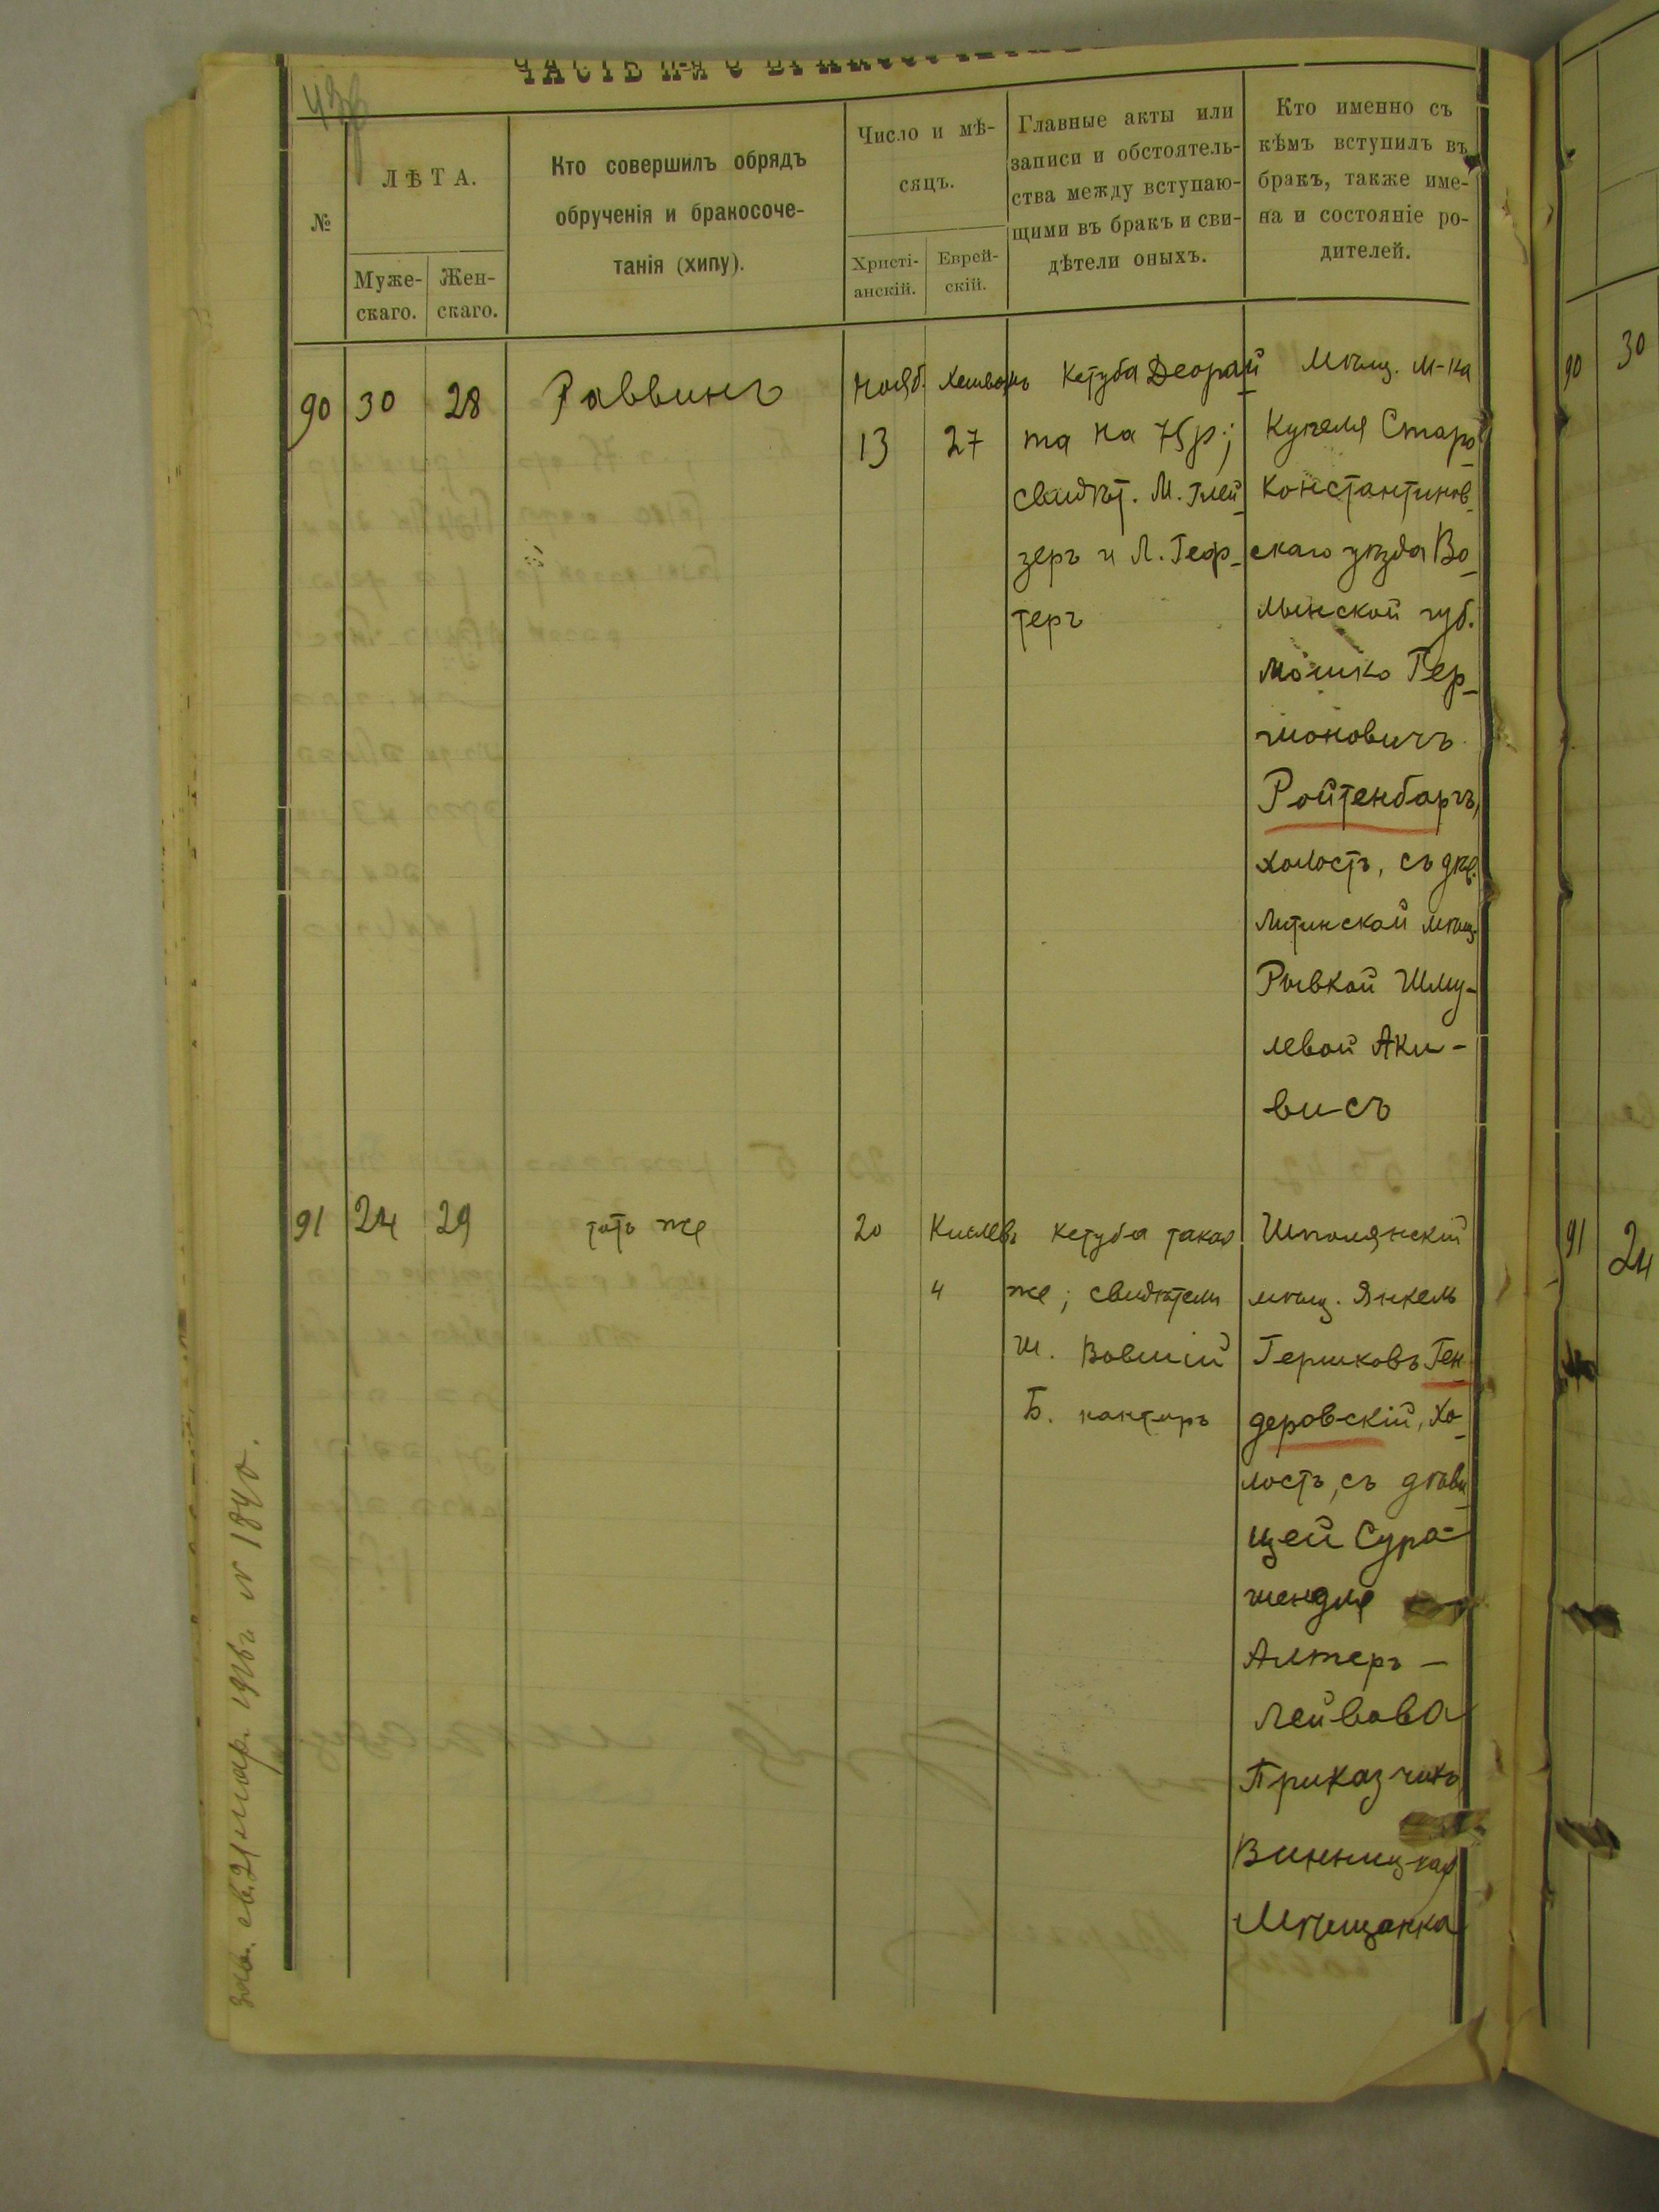 ЧАСТЬ II-я О БРАКОСОЧЕТАВШИХСЯ
№
ЛѢТА.
Муже-
скаго.
Жен-
скаго.
Кто совершилъ обрядъ
обрученія и бракосоче-
танія (хипу).
Число и мѣ-
сяцъ.
Христі-
анскій.
Еврей-
скій.
Главные акты или
записи и обстоятель-
ства между вступаю-
щими въ бракъ и сви-
дѣтели оныхъ.
Кто именно съ
кѣмъ вступилъ въ
бракъ, также име-
на и состояніе ро-
дителей.
90 30 28 Раввинъ
Нояб.
13
Хешванъ
27
Кетуба Деорай
та на 75р;
свидѣт. М. Глей
зеръ и Л. Геф-
теръ
Мѣщ. м-ка
Купеля Старо
Константинов
скаго уѣзда Во
лынской губ.
Мошко Гер-
шоновичъ
Ройтенбаргъ,
холостъ, съ дѣв.
Литинской мѣщ.
Рывкой Шму-
левой Аки-
висъ
91 24 29 тотъ же
20
Кислевъ
4
Кетуба такая
же; свидѣтели
Ш. Вовшій
Б. кантаръ
Шполянскій
мѣщ. Янкель
Гершковъ Ген
деровскій, хо
лостъ, съ дѣви
цей Сура-
шендля
Алтеръ -
Лейбова
Приказчикъ
Винницкая
Мѣщанка
90 30
91 24